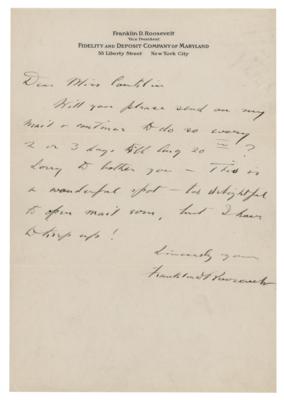 Franklin D. Roosevelt
Vice President
FIDELITY AND DEPOSIT COMPANY OF MARYLAND
55 Liberty Street New York City
Dear Miss Conklin
Will you please send on my
mail & continue to do so every
2 or 3 days till Aug 20th?
Sorry to bother you – This is
a wonderful spot – too delightful
to open mail soon, but I have
to keep up!
Sincerely yours
Franklin D Roosevelt